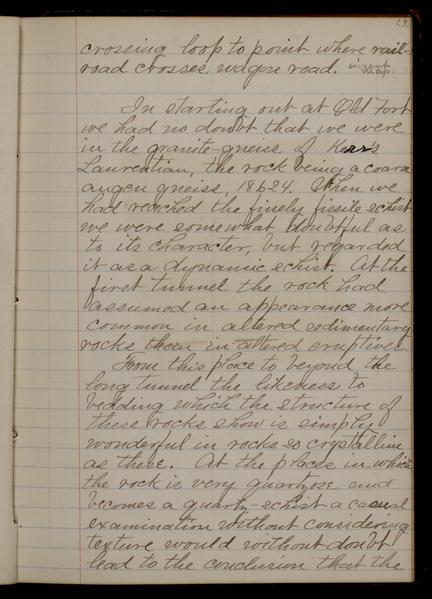 13
crossing loop to point where rail-
road crosses wagon road. insert map.
In starting out at Old Fort
we had no doubt that we were
in the granite-gneiss of Kerr's
Laurentian, the rock being a coarse
augen gneiss, 18624. When we
had reached the finely fissile schist
we were somewhat doubtful as
to its character, but regarded
it as a dynamic schist. At the
first tunnel the rock had
assumed an appearance more
common in altered sedimentary
rocks than in altered eruptives.
From this place to beyond the
long tunnel the likeness to
bedding which the structure of
these rocks show is simply
wonderful in rocks so crystalline
as these. At the places in which
the rock is very quartzose and
becomes a quartz-schist a casual
examination without considering
texture would without doubt
lead to the conclusion that the